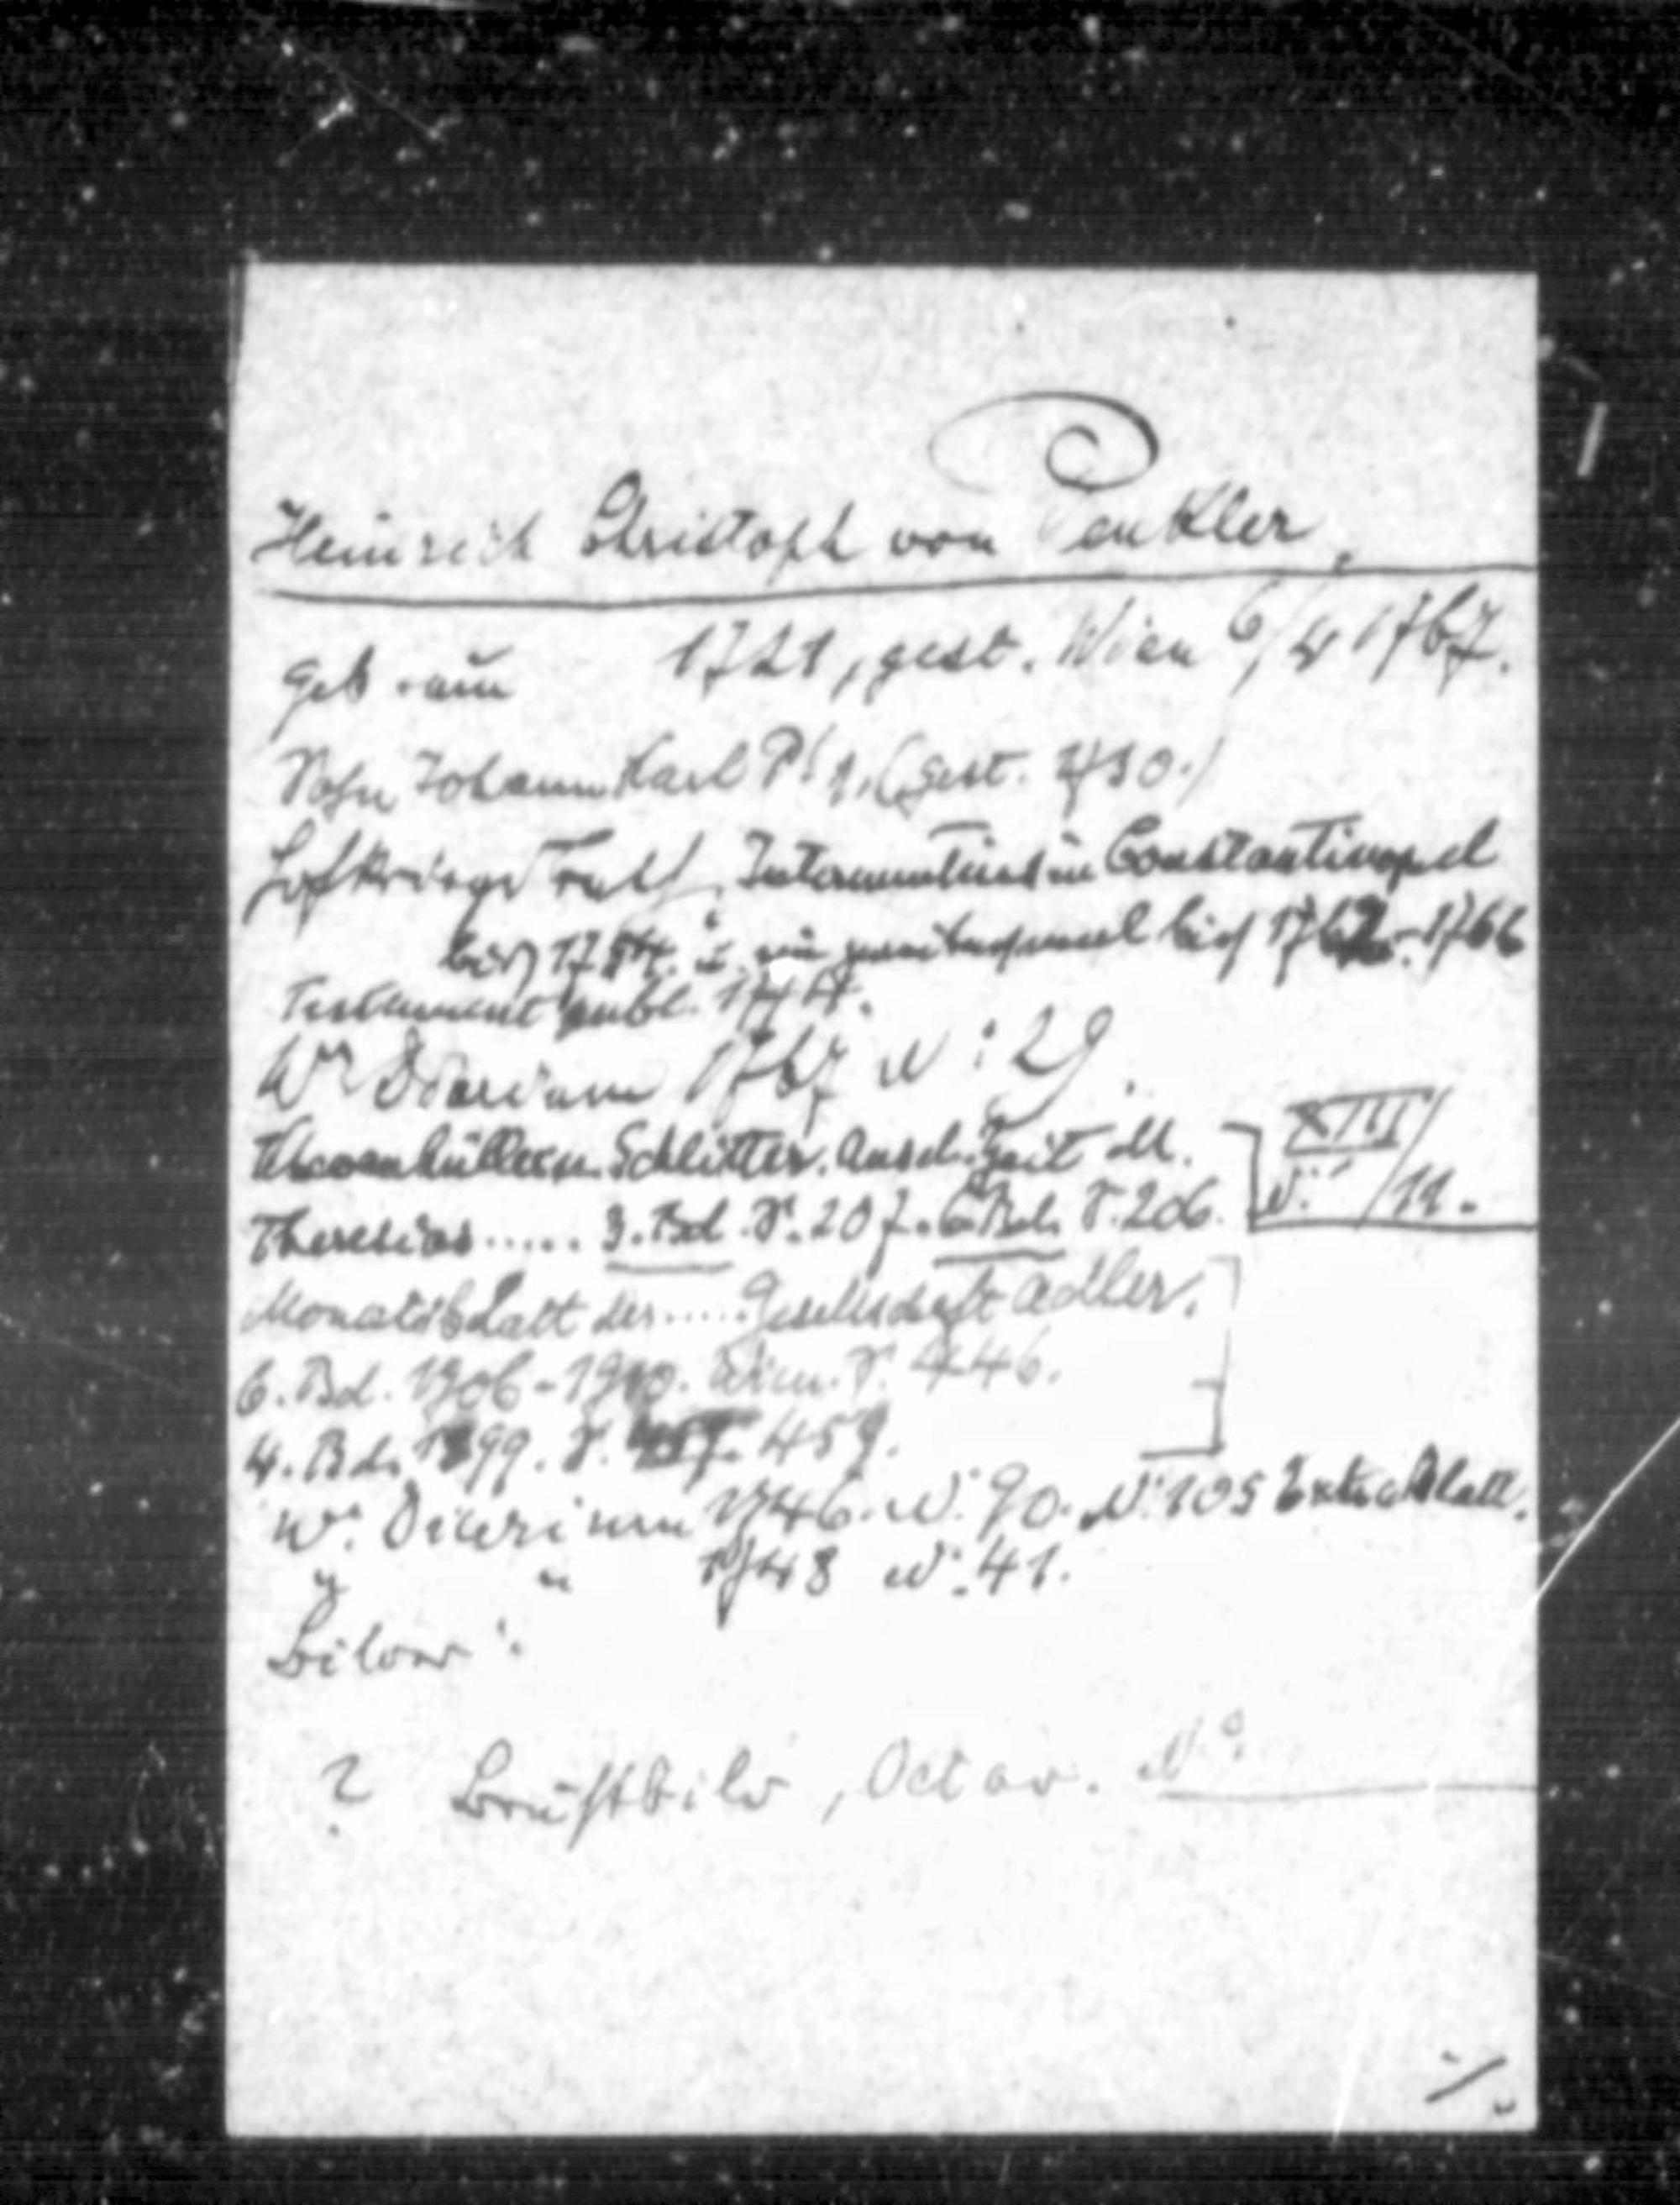 Heinrich Christoph von Penkler.
geb. am 1721, gest. Wien 6/4 1767.
Sohn Johann Karl P! 1, (gest. 1730.)
Hofkriegsrath, Internuntius in Constantinopel
bis 1754. u. ein zweitesmal bis 1762-1766
Testament publ. 1774.
Wr Diarium 1767 N: 29.
Khevenhüller u. Schlitter. Aus d. Zeit M.
Theresias ..... 3. Bd. S. 207. 6. Bd. S. 206.
XIII/
N: /11.
Monatsblatt der ..... Gesellschaft Adler.
6. Bd. 1906-1910. Wien. S. 446.
4. Bd. 1899. S. 459.
Wr. Diarium 1746. N: 90. N: 105 Extra Blatt.
" " 1748 N: 41.
Bilder:
? Brustbild, Octav. No:
./.